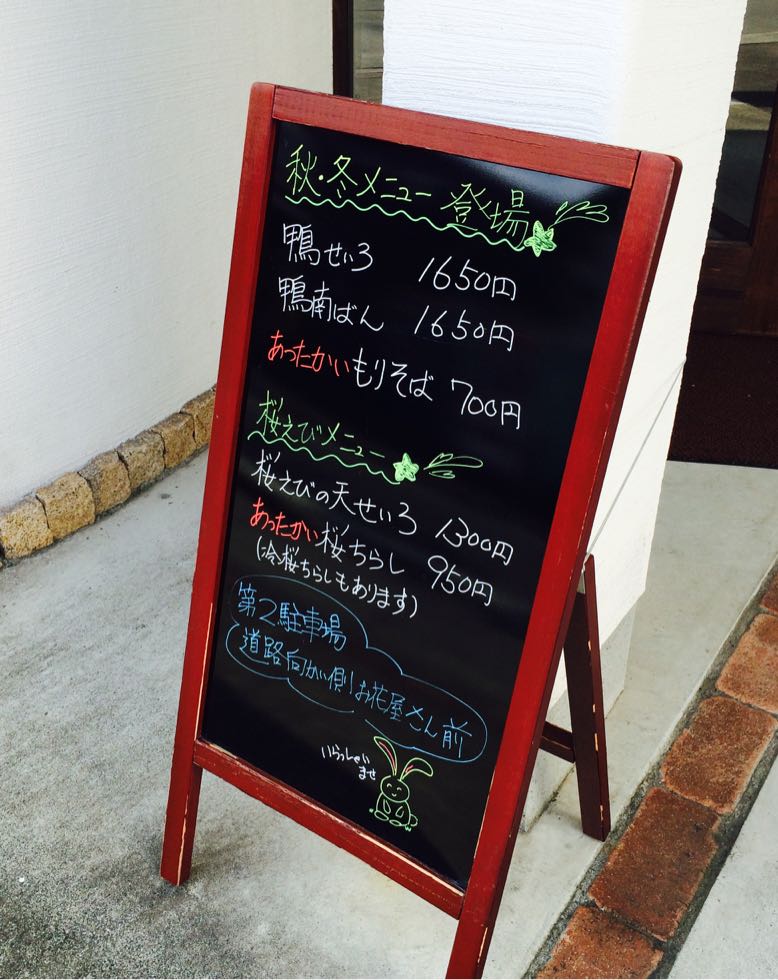 秋・冬メニュー登場
鴨せいろ 1650円
鴨南ばん 1650円
あったかいもりそば 700円
桜えびメニュー
桜えびの天せいろ 1300円
あったかい桜ちらし 950円
(冷桜ちらしもあります)
第2駐車場
道路向かい側お花屋さん前
いらっしゃい
ませ